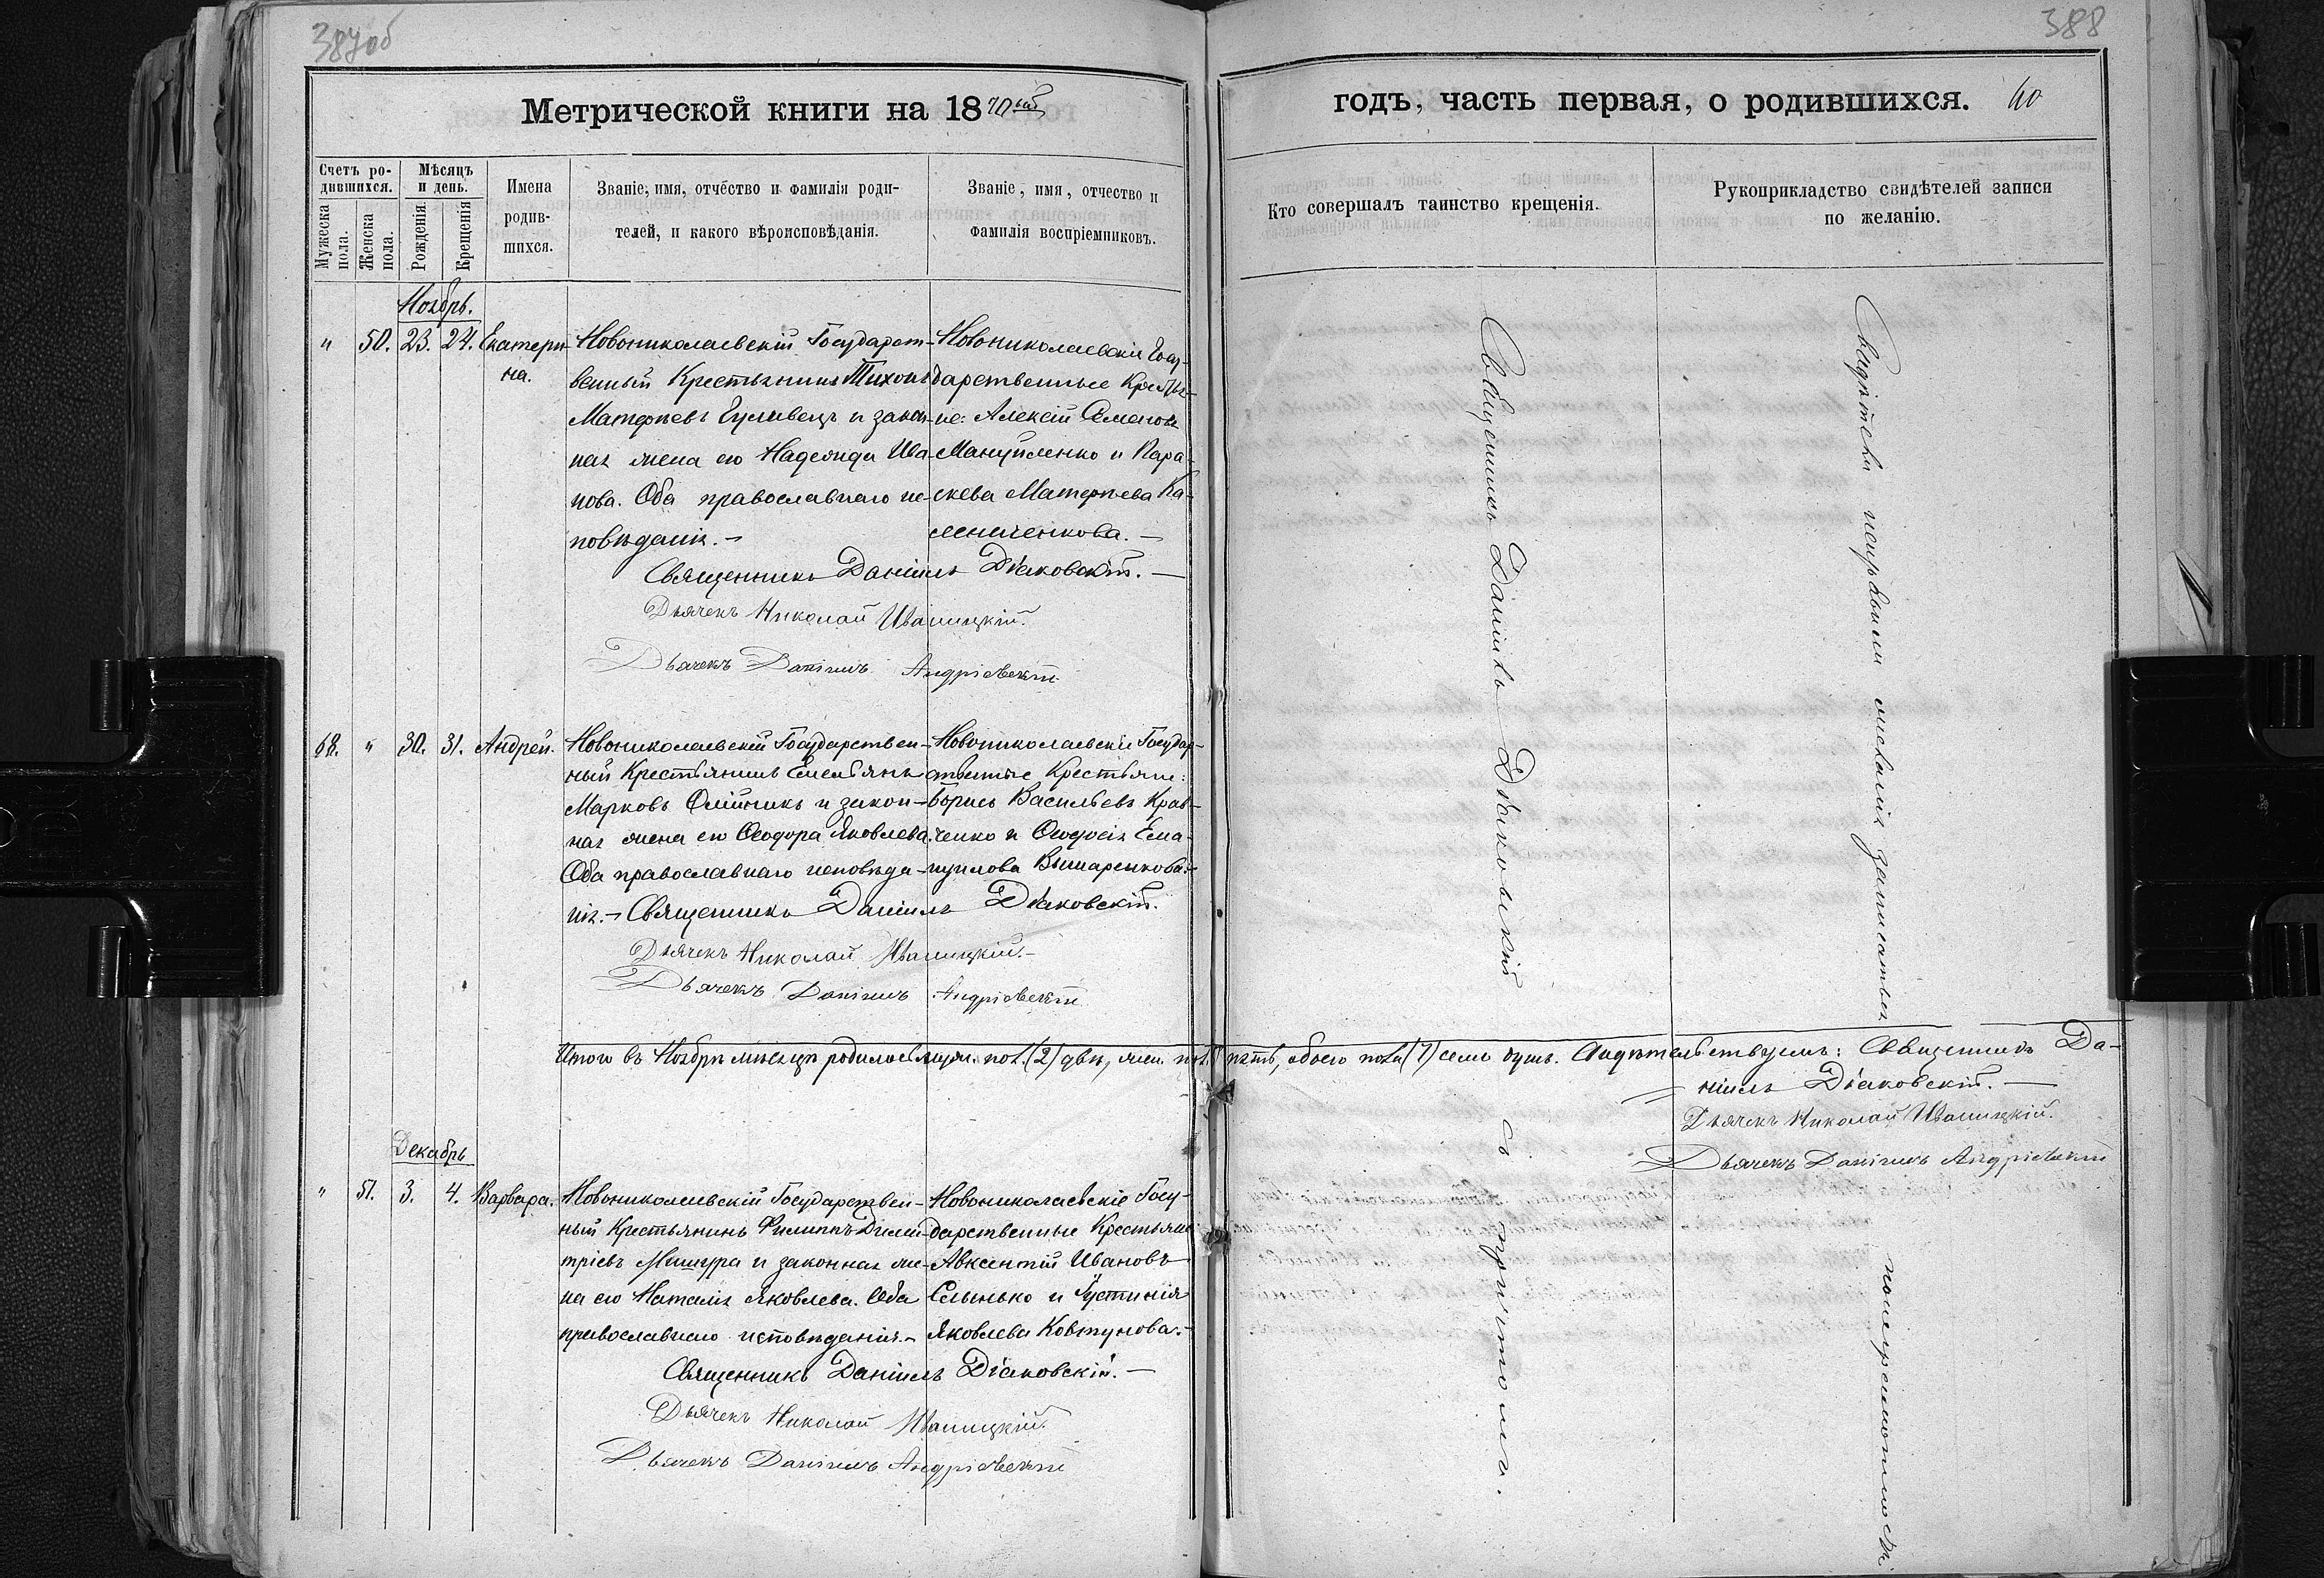 387об
388
Метрической книги на 1870ый
годъ, часть первая, о родившихся. 40
Счетъ ро-
дившихся.
Мужеска пола.
Женска пола.
Мѣсяцъ
и день.
Рожденія.
Крещенія
Имена
родив-
шихся.
Званіе, имя, отчество и фамилія роди-
телей, и какого вѣроисповѣданія.
Званіе, имя, отчество и
фамилія воспріемниковъ.
Кто совершалъ таинство крещенія.
Рукоприкладство свидѣтелей записи
по желанію.
Ноябрь.
" 50. 23. 24. Екатери-
на.
Новониколаевскій Государст-
венный Крестьянинъ Тихонъ
Матѳѣевъ и закон-
ная жена его Надежда Ива-
нова. Оба православнаго ис-
повѣданія. –
Новониколаевскіе Госу-
дарственные Крестья-
не: Алексій Семеновъ
Мануйленко и Пара-
скева Матѳѣева Ка-
Священникъ Даніилъ Діаковскій. –
Дьячекъ Николай Иваницкій.
Дьячекъ Даніилъ Андріевскій
68. " 30. 31. Андрей.
Новониколаевскій Государствен-
ный Крестьянинъ Емельянъ
Марковъ Олійникъ и закон-
ная жена его Ѳеодора Яковлева.
Оба православнаго исповѣда-
нія. –
Новониколаевскіе Государ-
ственные Крестьяне:
Борисъ Васильевъ Крав-
ченко и Ѳеодосія Ема-
нуилова
Священникъ Даніилъ Діаковскій.
Дьячекъ Николай Иваницкій. –
Дьячекъ Даніилъ Андріевскій
Итого въ Ноябрѣ мѣсяцѣ родилось муж. пол. (2) двѣ, жен. пол. 5 пять, обоего пола (7) семь душъ. Свидѣтельствуемъ: Священникъ Да-
ніилъ Діаковскій. –
Дьячекъ Николай Иваницкій.
Дьячекъ Даніилъ Андріевскій
Декабрь
" 51. 3. 4. Варвара.
Новониколаевскій Государствен-
ный Крестьянинъ Филиппъ Дими-
тріевъ Мишура и законная же-
на его Наталія Яковлева. Оба
православнаго исповѣданія. –
Новониколаевскіе Госу-
дарственные Крестьяне
Авксентій Ивановъ
и Іустинія
Яковлева Ковтунова. –
Священникъ Даніилъ Діаковскій. –
Дьячекъ Николай Иваницкій.
Дьячекъ Даніилъ Андріевскій
Священникъ Даніилъ Діаковскій
съ причтомъ.
Свидѣтели желанія записаться